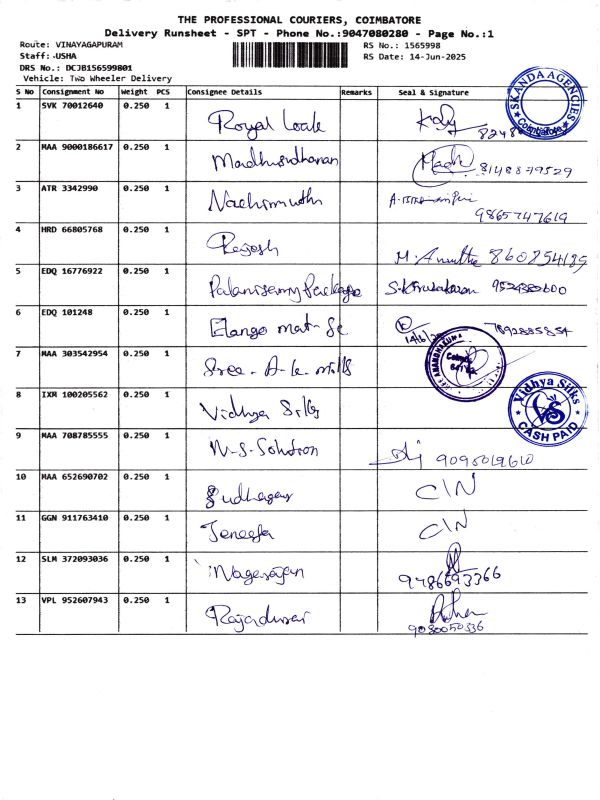 THE PROFESSIONAL COURIERS, COIMBATORE
Delivery Runsheet - SPT - Phone No.:9047080280 - Page No.:1
Route: VINAYAGAPURAM
RS No.: 1565998
Staff: -USHA
RS Date: 14-Jun-2025
DRS No.: DCJB156599801
Vehicle: Two Wheeler Delivery
S No Consignment No Weight PCS Consignee Details Remarks Seal & Signature
1 SVK 70012640 0.250 1 Royal
SKANDA AGENCIES
Coimbatore
2 MAA 9000186617 0.250 1 Madhusudhanan Madh 8148879529
3 ATR 3342990 0.250 1 Nachimuthu 9865747619
4 HRD 66805768 0.250 1 Rajesh
5 EDQ 16776922 0.250 1 Palanisamy Package
6 EDQ 101248 0.250 1 Elango mat- Se 7892885854
7 MAA 303542954 0.250 1 Sree - A-k- mills
8 IXR 100205562 0.250 1 Vidhya Silks
Vidhya Silks
VS
CASH PAID
9 MAA 708785555 0.250 1 M-S-Solution 9095019610
10 MAA 652690702 0.250 1 Sudhagar C/N
11 GGN 911763410 0.250 1 Jeneefa C/N
12 SLM 372093036 0.250 1 Nagarajan 9486693366
13 VPL 952607943 0.250 1 Rajadurai 9080050336